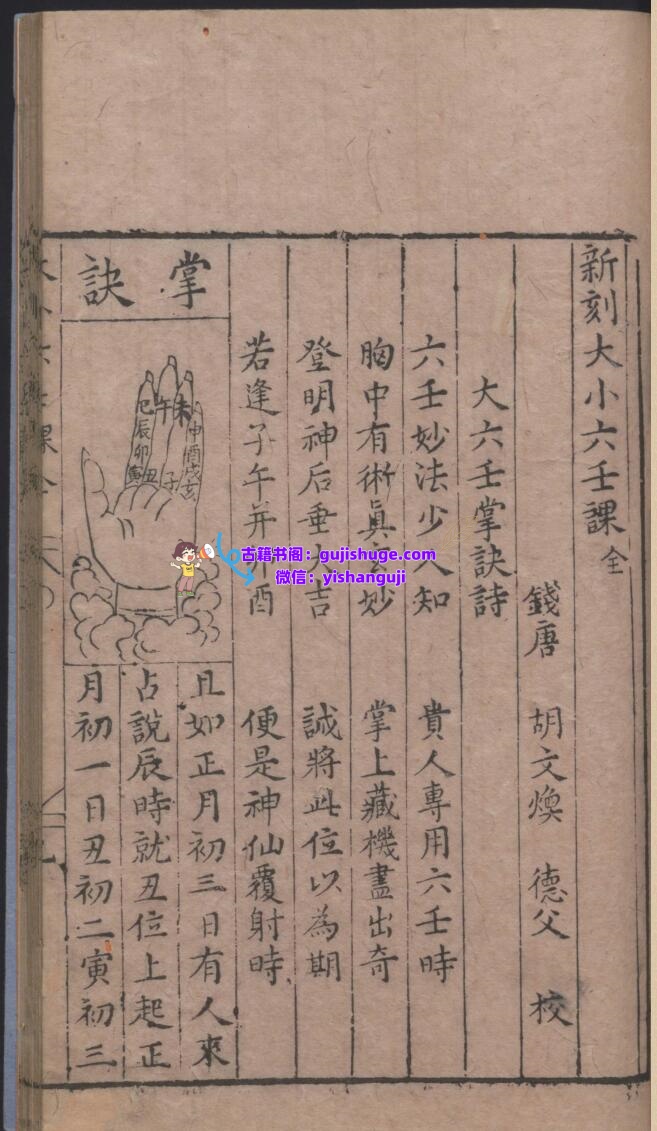 新刻大小六壬課全
錢唐 胡文煥 德父 校
大六壬掌訣詩
六壬妙法少人知 貴人專用六壬時
胸中有術眞玄妙 掌上藏機盡出奇
登明神后垂大吉 誠將此位以為期
若逢子午并卯酉 便是神仙覆射時
掌訣
未
午
巳
辰
卯
寅
丑
子
申
酉
戌
亥
且如正月初三日有人來
占說辰時就丑位上起正
月初一日丑初二寅初三
古籍书阁：gujishuge.com
微信：yishanguji